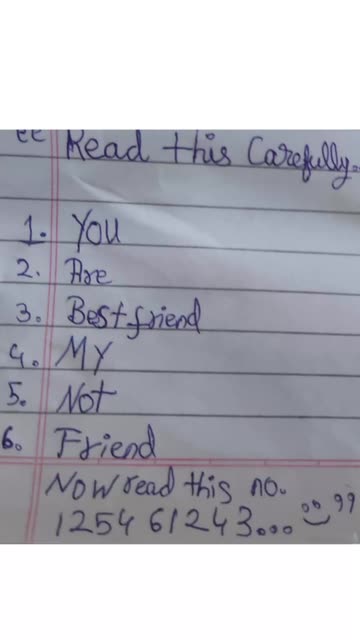 “ Read this Carefully.
1. You
2. Are
3. Bestfriend
4. MY
5. Not
6. Friend
Now read this no.
125461243... ”